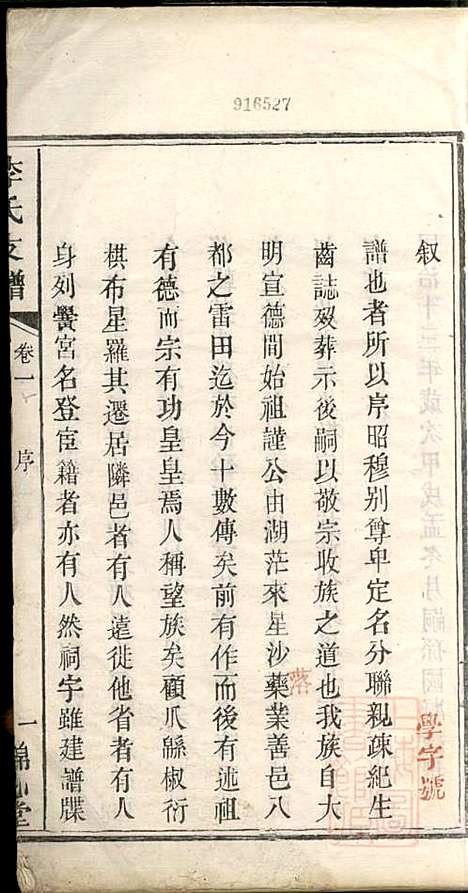 916527
叙
譜也者所以序昭穆别尊卑定名分聯親疎紀生
齒誌歿葬示後嗣以敬宗收族之道也我族自大
明宣德間始祖謹公由湖茫來星沙藥業善邑八
都之雷田迄於今十數傳矣前有作而後有述祖
有德而宗有功皇皇焉人稱望族矣顧瓜緜椒衍
棋布星羅其遷居隣邑者有人遠徙他省者有人
身列黌宮名登宦籍者亦有人然祠宇雖建譜牒
落
學字號
李氏支譜
卷一
序
一